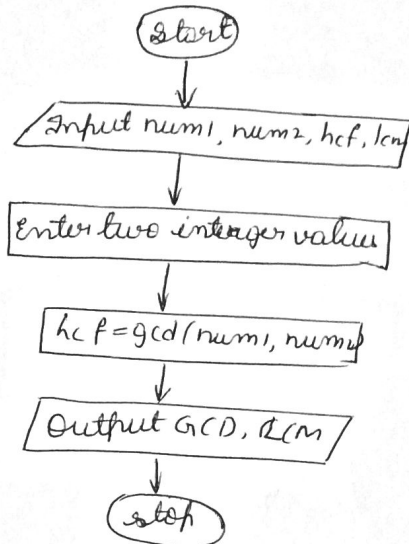 Start
Input num1, num2, hcf, lcm
Enter two intenger values
hcf=gcd(num1, num2)
Output GCD, LCM
stop